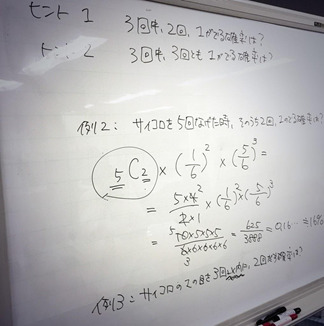 ヒント1 3回中、2回、1がでる確率は?
ヒント2 3回中、3回とも1がでる確率は?
例2: サイコロを5回なげた時、そのうち2回、1のでる確率は?
5C2 × (1/6)^2 × (5/6)^3 =
= 5×4^2/2×1 × (1/6)^2 × (5/6)^3
= 10×5×5×5/6×6×6×6×6 = 625/3888 = 0.16… ≒16%
3
例3: サイコロの 目を3回以内、2回 確率は?